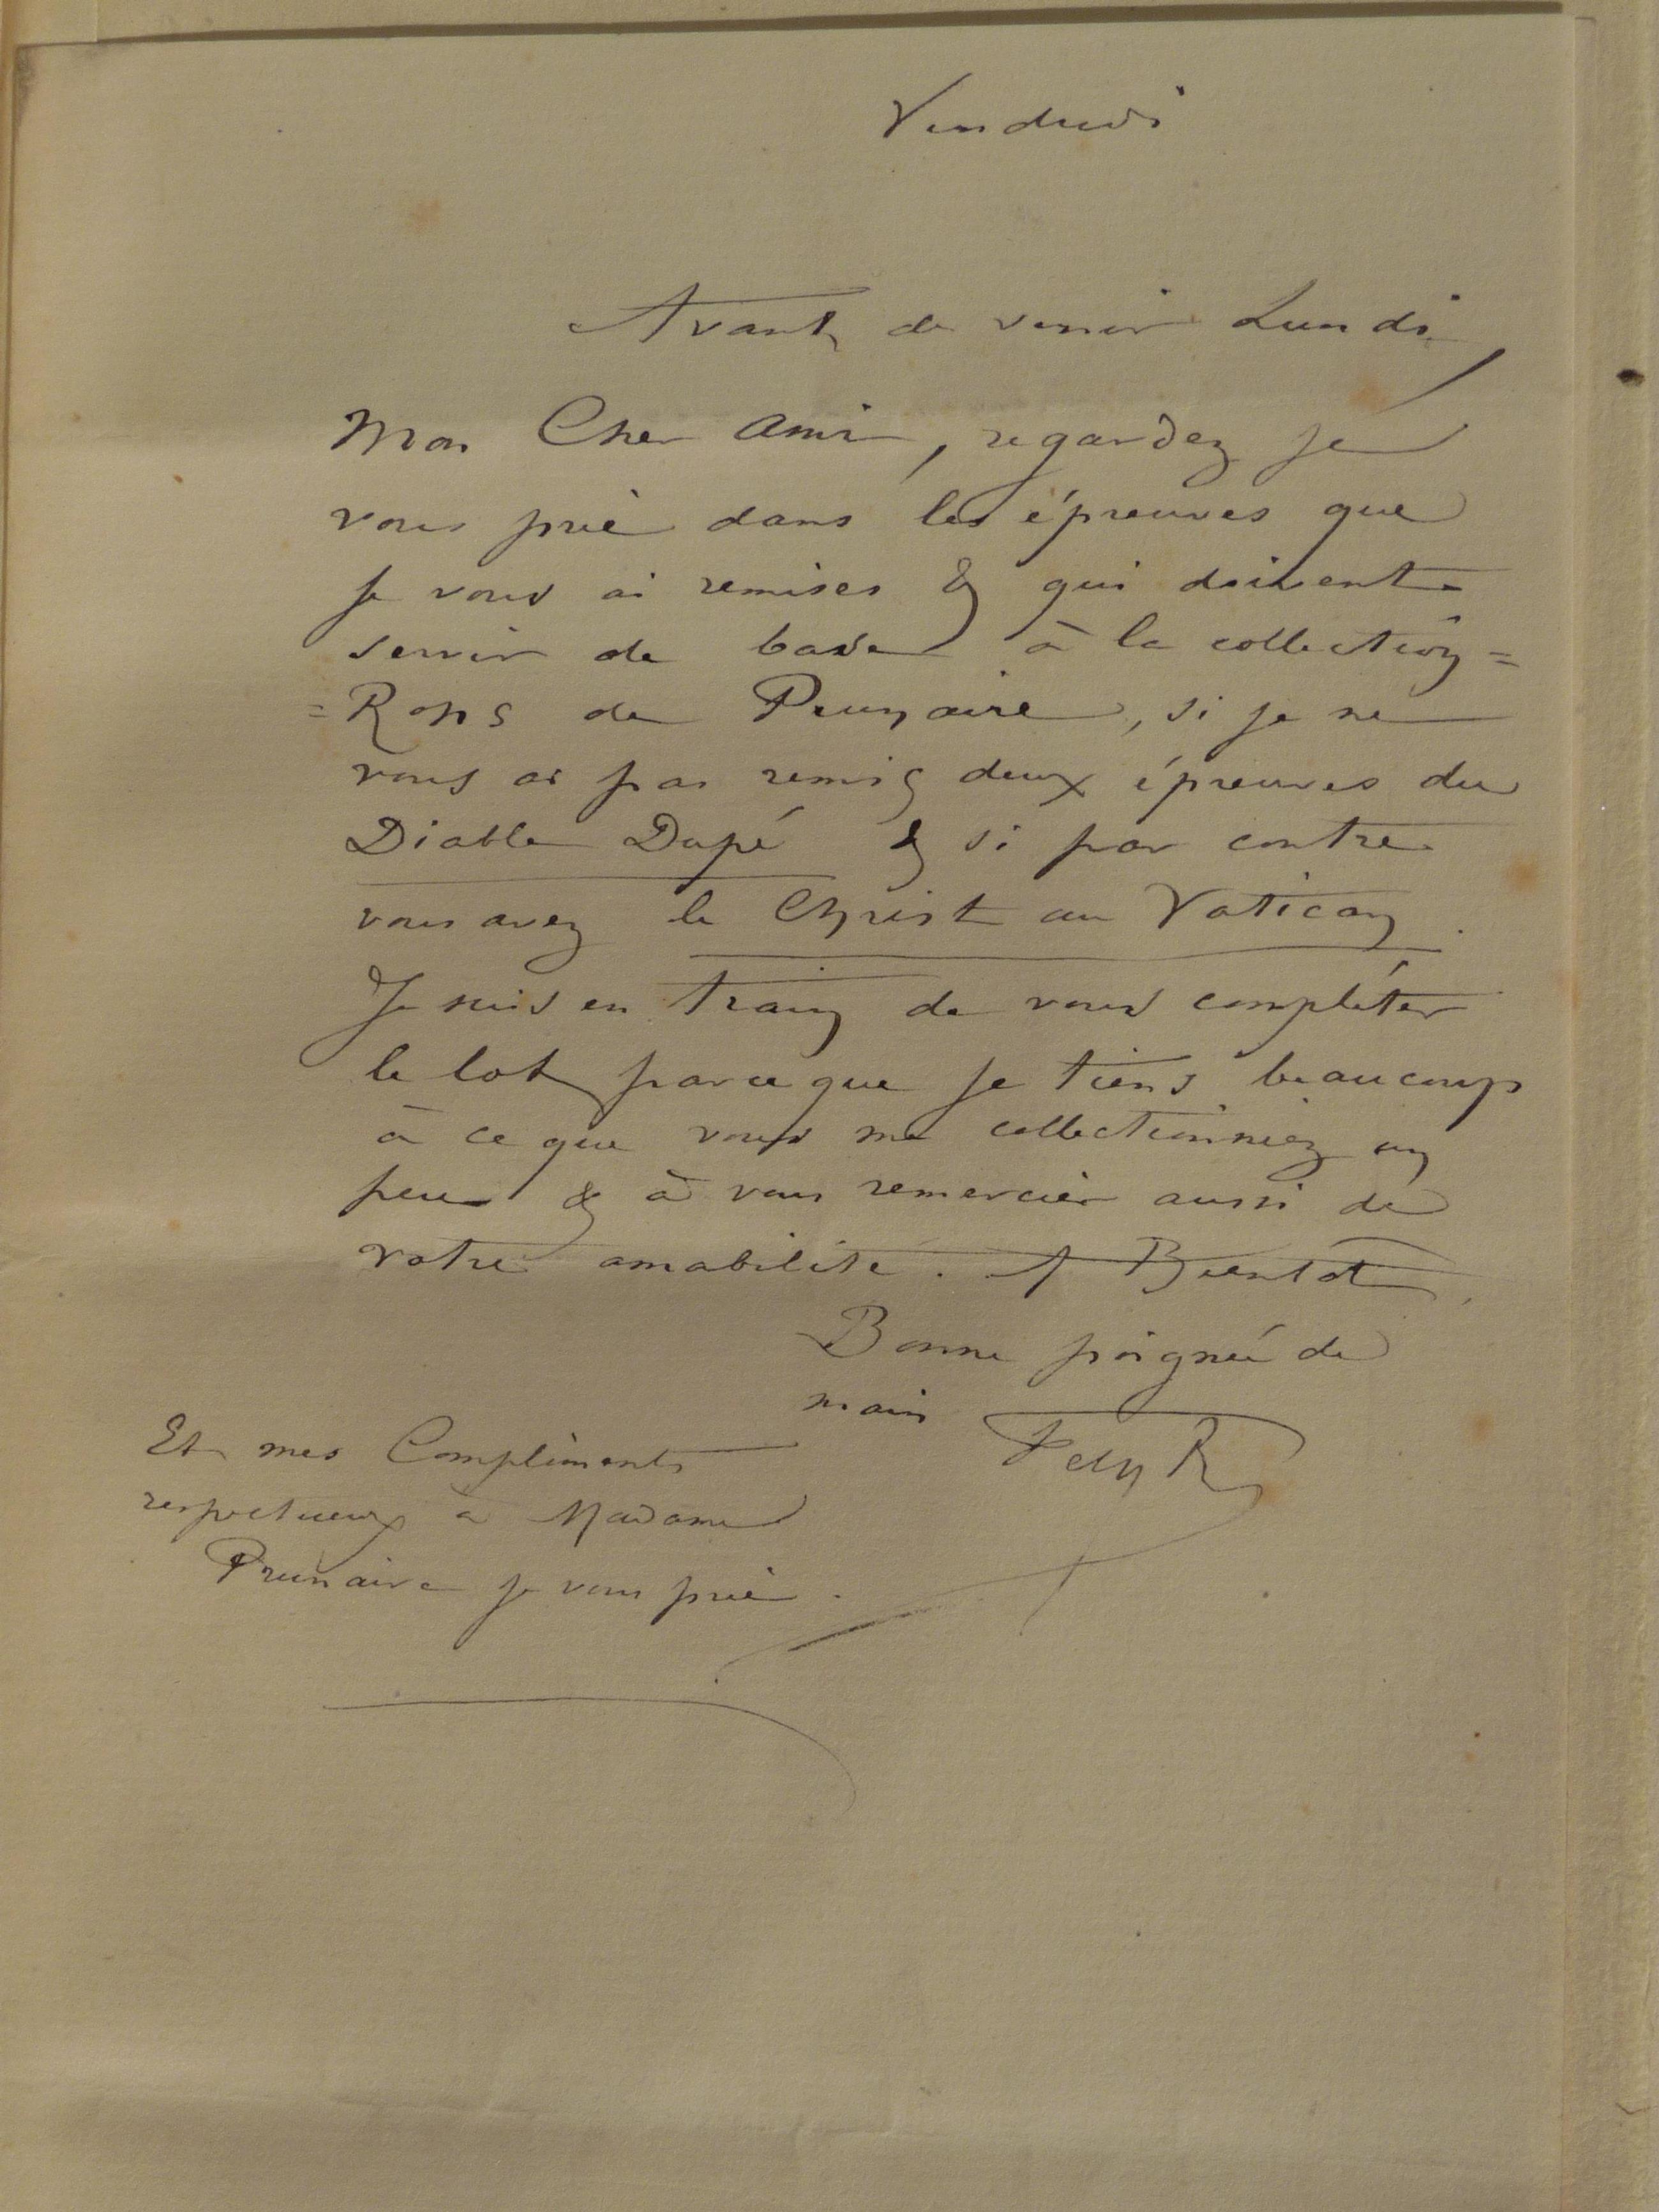 Vendredi
Avant de venir Lundi,
Mon Cher Ami, regardez je
vous prie dans les épreuves que
je vous ai remises & qui doivent
servir de base à la collection=
=Rops de Prunaire, si je ne
vous ai pas remis deux épreuves du
Diable Dupé & si par contre
vous avez le Christ au Vatican.
Je suis en train de vous compléter
le lot parceque je tiens beaucoup
à ce que vous me collectionniez un
peu & à vous remercier aussi de
votre amabilité. A Bientôt,
Bonne poignée de
main Fély R
Et mes Compliments
respectueux à Madame
Prunaire je vous prie.